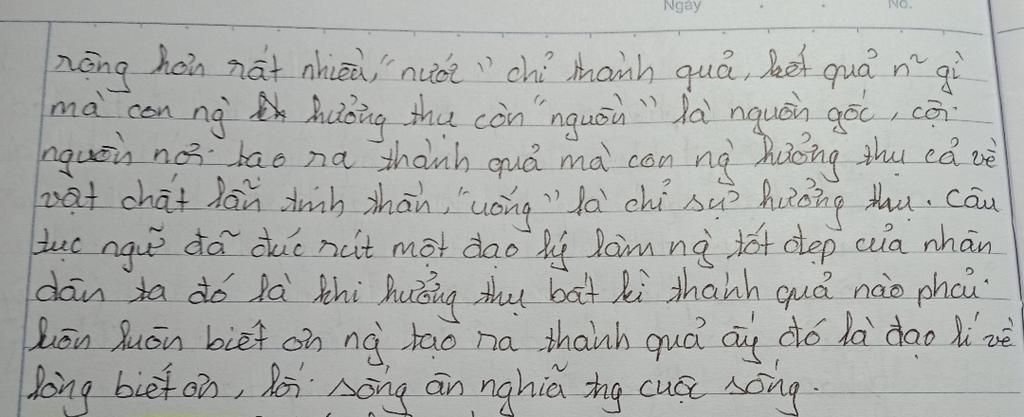 Ngày No.
rộng hơn rất nhiều, "nước" chỉ thành quả, kết quả n~ gì
mà con ng` hưởng thụ còn "nguồn" là nguồn gốc, cội
nguồn nơi tạo ra thành quả mà con ng` hưởng thụ cả về
vật chất lẫn tinh thần, "uống" là chỉ sự hưởng thụ. Câu
tục ngữ đã đúc rút một đạo lý làm ng` tốt đẹp của nhân
dân ta đó là khi hưởng thụ bất kì thành quả nào phải
luôn luôn biết ơn ng` tạo ra thành quả ấy đó là đạo lí về
lòng biết ơn, lối sống ân nghĩa tng cuộc sống.